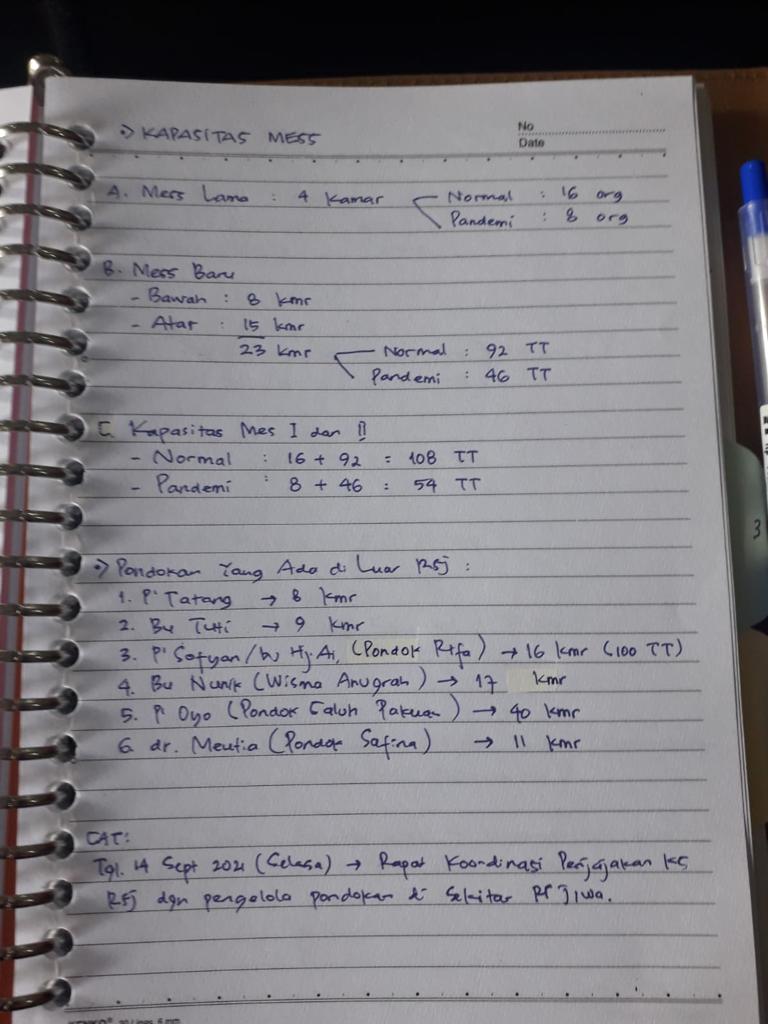 •) KAPASITAS MESS
No
Date
A. Mess Lama : 4 Kamar Normal : 16 org
Pandemi : 8 org
B. Mess Baru
- Bawah : 8 kmr
- Atas : 15 kmr
23 kmr Normal : 92 TT
Pandemi : 46 TT
C. Kapasitas Mes I dan II
- Normal : 16 + 92 = 108 TT
- Pandemi : 8 + 46 = 54 TT
•) Pondokan Yang Ada di Luar RSJ :
1. P' Tatang → 8 kmr
2. Bu Tuti → 9 kmr
3. P' Sofyan/bu Hj. Ai, (Pondok Rifa) → 16 kmr (100 TT)
4. Bu Nunik (Wisma Anugrah) → 17 kmr
5. P' Oyo (Pondok Galuh Pakuan) → 40 kmr
6. dr. Meutia (Pondok Safina) → 11 kmr
CAT:
Tgl. 14 Sept 2021 (Selasa) → Rapat Koordinasi Penjajakan KS
RSJ dgn pengelola pondokan di Sekitar RS Jiwa.
3